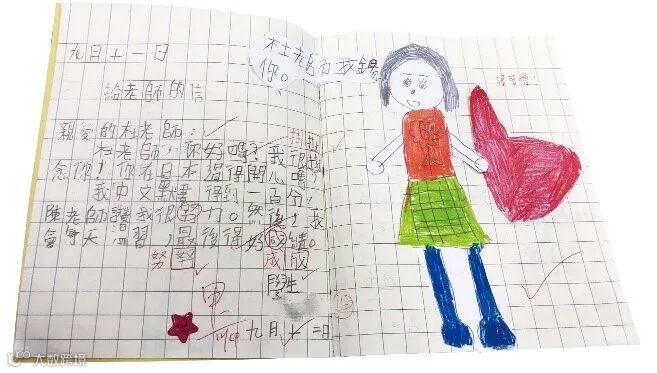 九月十一日
給老師的信
親愛的杜老師：
杜老師，你好嗎？我很掛
念你！你在日本過得開心嗎？
我中文默書得到一百分！
陳老師讚我很努力。然後，我
會每天溫習，最後得好成績。
努 努
成 成
學生
九月十二日
杜老師，我
你。
大数跨境